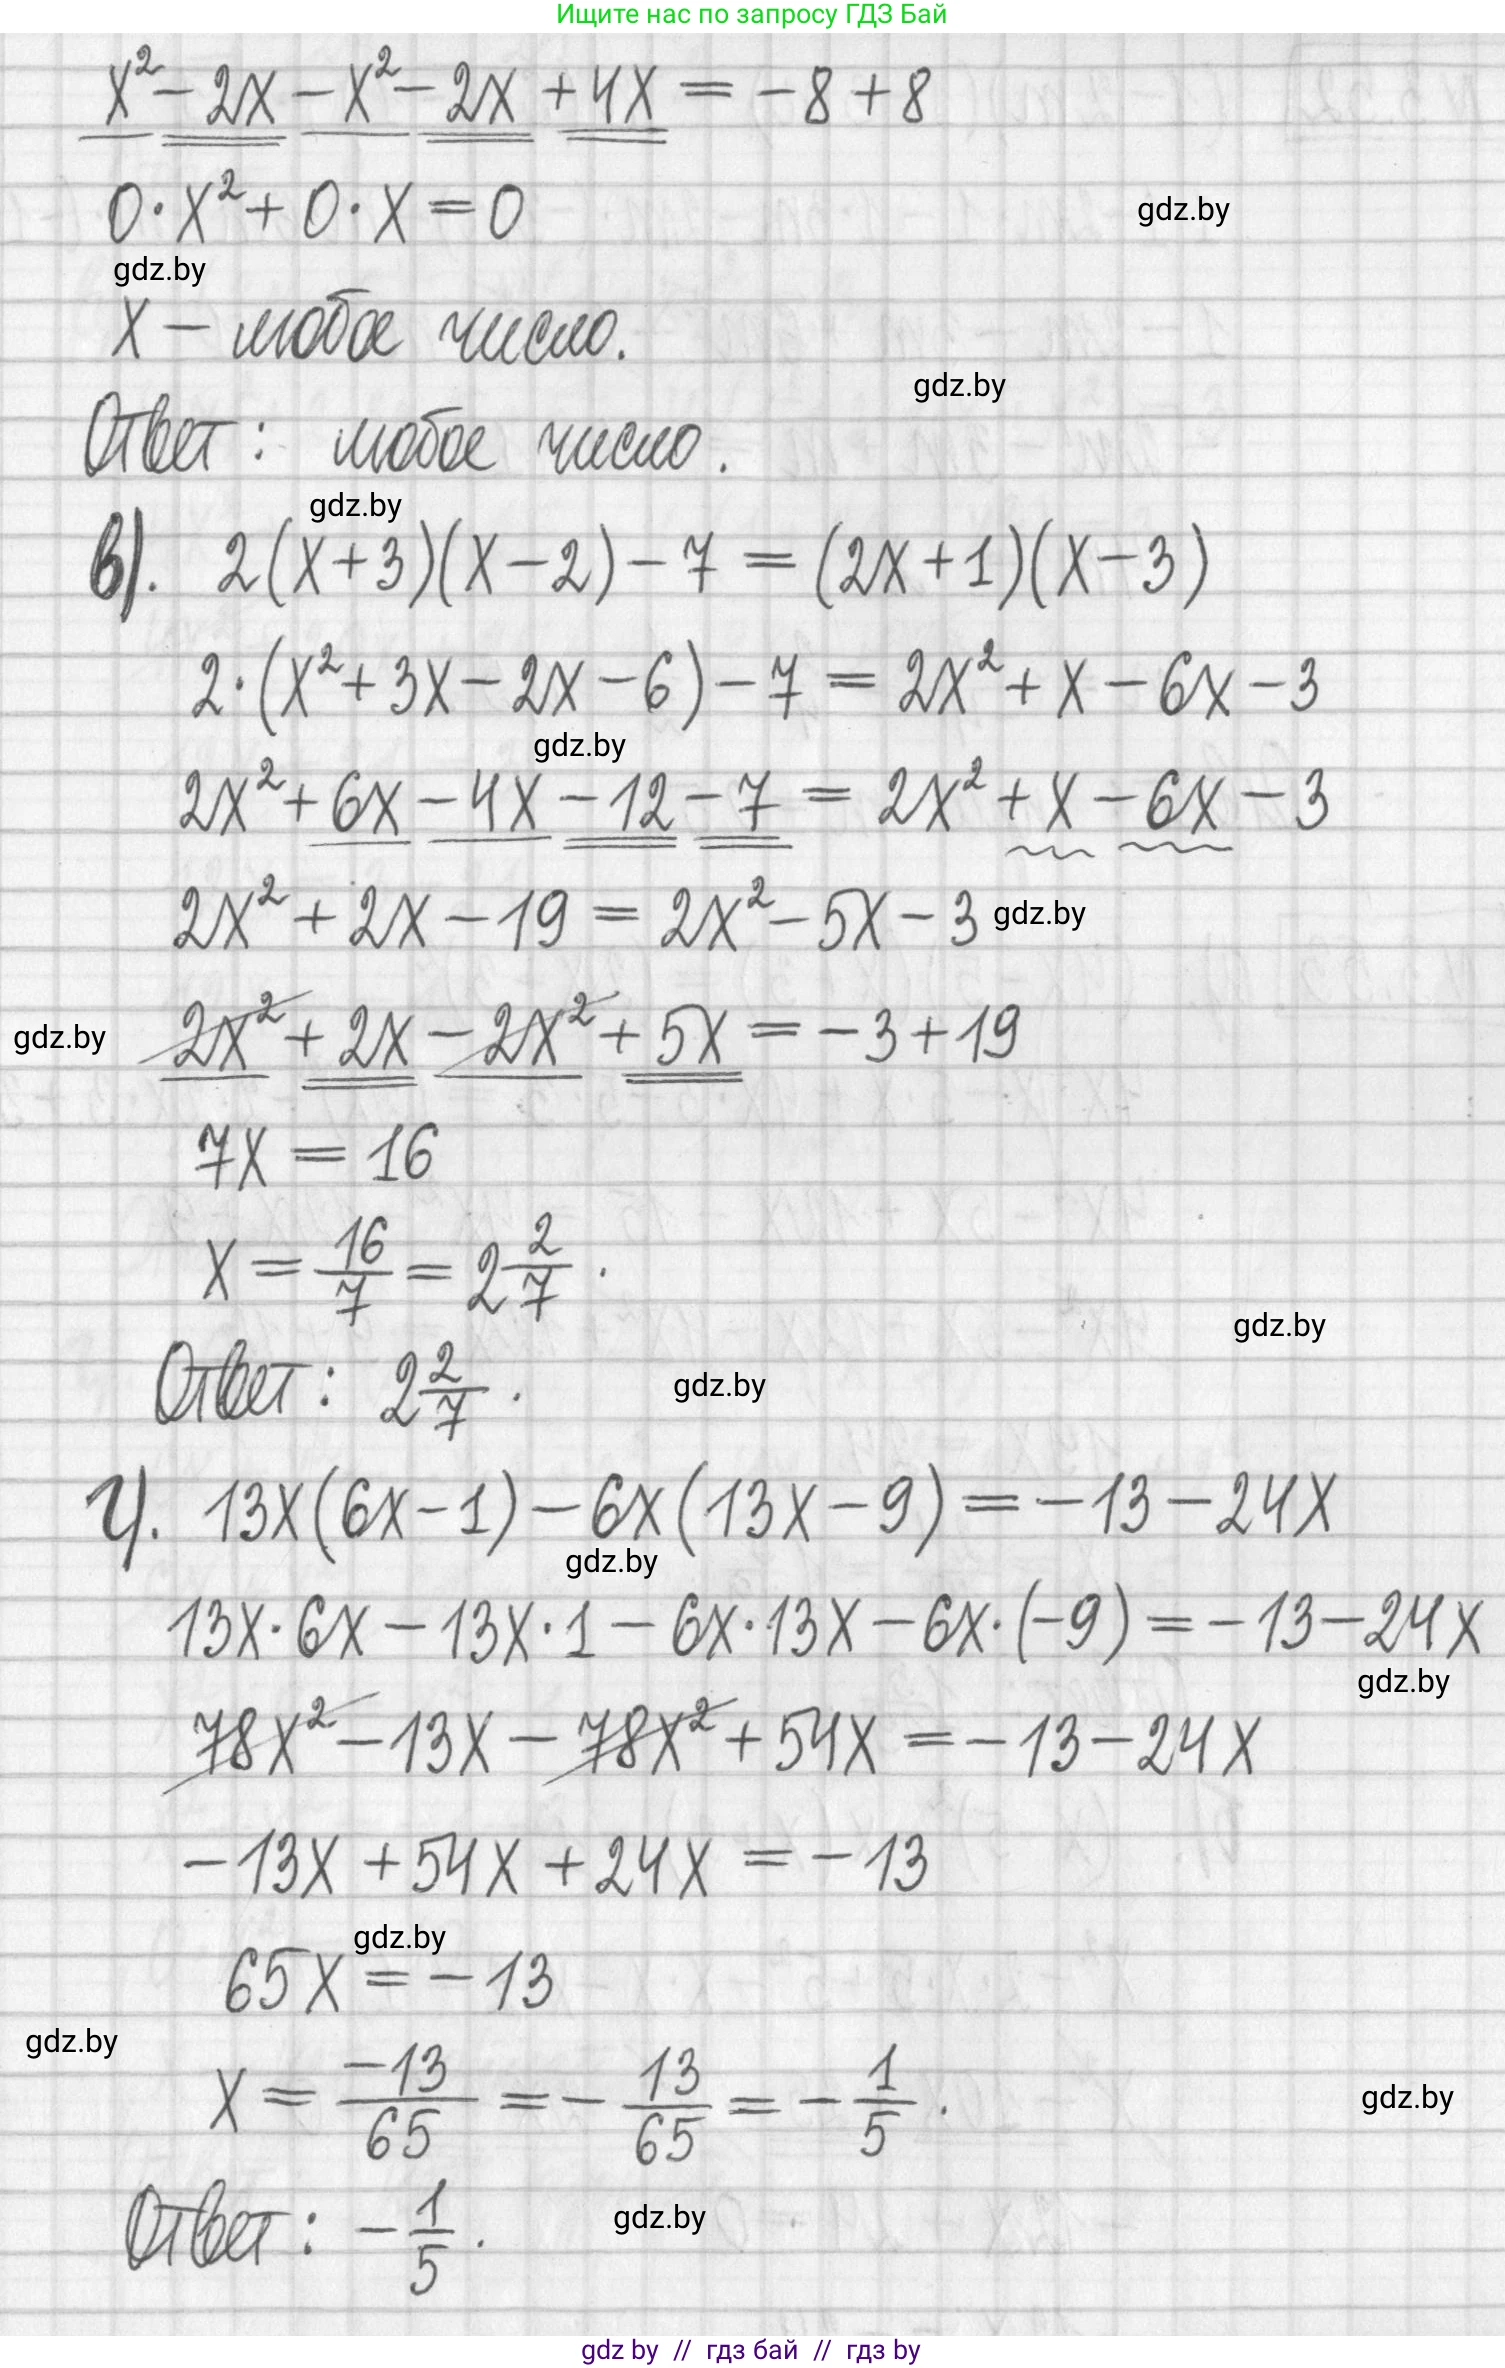 Ищите нас по запросу ГДЗ Бай
x² − 2x − x² − 2x + 4x = −8 + 8
0·x² + 0·x = 0
gdz.by
gdz.by
x − любое число.
gdz.by
Ответ: любое число.
gdz.by
в). 2(x+3)(x−2) − 7 = (2x+1)(x−3)
2·(x² + 3x − 2x − 6) − 7 = 2x² + x − 6x − 3
gdz.by
2x² + 6x − 4x − 12 − 7 = 2x² + x − 6x − 3
2x² + 2x − 19 = 2x² − 5x − 3 gdz.by
gdz.by 2x² + 2x − 2x² + 5x = −3 + 19
7x = 16
x = 16/7 = 2 2/7.
gdz.by
Ответ: 2 2/7. gdz.by
г). 13x(6x−1) − 6x(13x−9) = −13 − 24x
gdz.by
13x·6x − 13x·1 − 6x·13x − 6x·(−9) = −13 − 24x
gdz.by
78x² − 13x − 78x² + 54x = −13 − 24x
−13x + 54x + 24x = −13
gdz.by
65x = −13
gdz.by
x = −13/65 = −13/65 = −1/5.
gdz.by
Ответ: −1/5. gdz.by
gdz by // гдз бай // гдз by